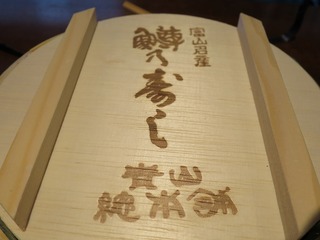 富山名産
鱒乃寿し
青山
總本舗